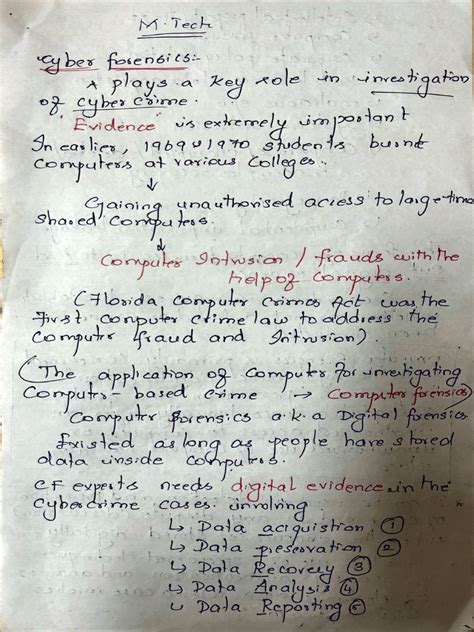 M.Tech
Cyber forensics:-
* plays a key role in investigation
of cyber crime.
"Evidence" is extremely important
In earlier, 1969 & 1970 students burnt
Computers at various Colleges.
↓
Gaining unauthorised access to large-time
shared Computers.
↓
Computer Intrusion / frauds with the
help of Computers.
(Florida computer crimes Act was the
First computer crime law to address the
Computer fraud and Intrusion).
(The application of Computer for investigating
Computer-based crime → Computer forensics)
Computer forensics a.k.a Digital forensics
Existed as long as people have stored
data inside computers.
CF experts needs digital evidence in the
Cybercrime cases involving
↳ Data aciquistion ①
↳ Data preservation ②
↳ Data Recovery ③
↳ Data Analysis ④
↳ Data Reporting ⑤